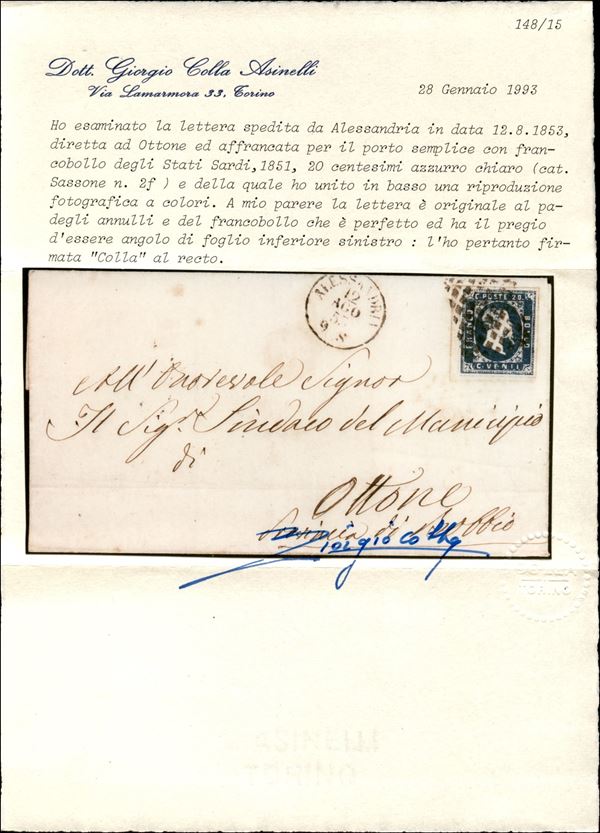 148/15
Dott. Giorgio Colla Asinelli
Via Lamarmora 33, Torino
28 Gennaio 1993
Ho esaminato la lettera spedita da Alessandria in data 12.8.1853,
diretta ad Ottone ed affrancata per il porto semplice con fran-
cobollo degli Stati Sardi,1851, 20 centesimi azzurro chiaro (cat.
Sassone n. 2f ) e della quale ho unito in basso una riproduzione
fotografica a colori. A mio parere la lettera è originale al pa-
degli annulli e del francobollo che è perfetto ed ha il pregio
d'essere angolo di foglio inferiore sinistro : l'ho pertanto fir-
mata "Colla" al recto.
ALESSANDRIA
12
AGO
C. POSTE 20.
FRANCO
BOLLO
C. VENTI.
All' Onorevole Signor
Il Sig.r Sindaco del Municipio
di
Ottone
di Bobbio
Giorgio Colla
TORINO
ASINELLI
TORINO